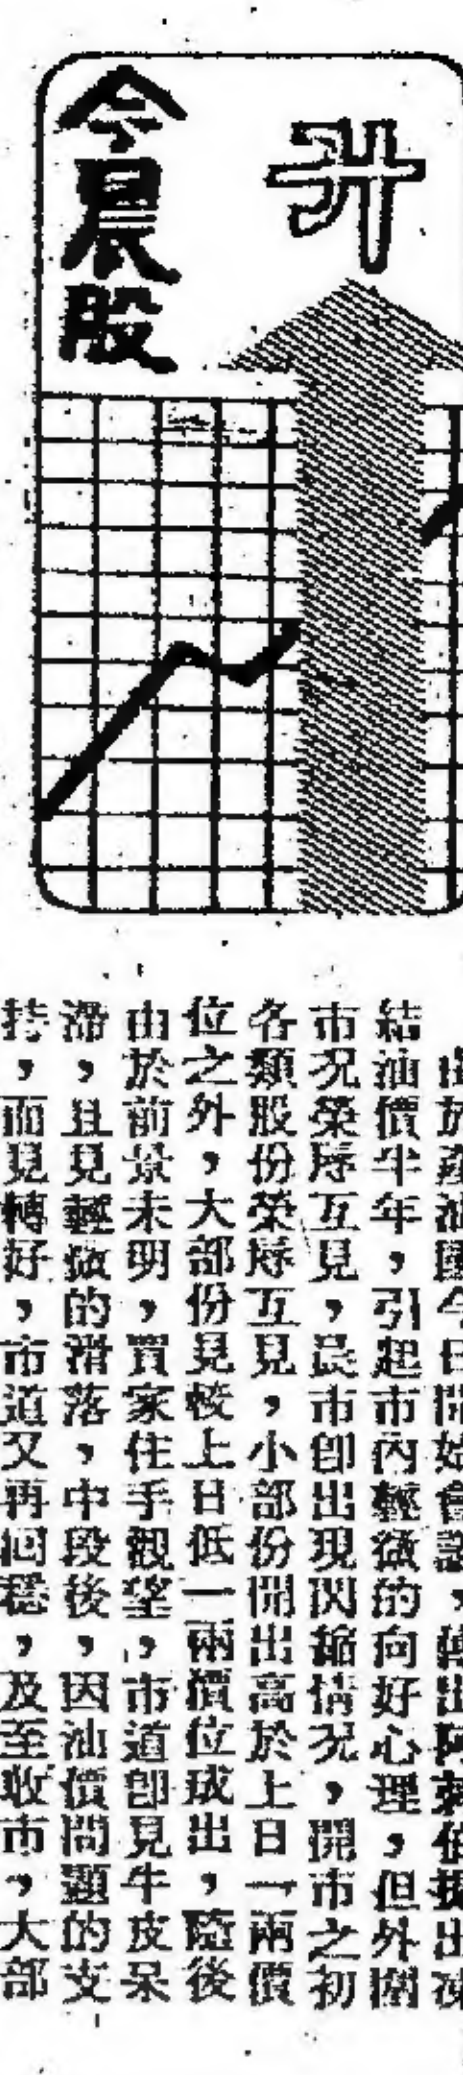 今晨股
升
由於產油國今日開始會議，傳出阿剌伯提出凍
結油價半年，引起市內輕微的向好心理，但外圍
市況榮辱互見，晨市卽出現閃縮情況，開市之初
各類股份榮辱互見，小部份開出高於上日一兩價
位之外，大部份見較上日低一兩價位成出，隨後
由於前景未明，買家住手觀望，市道卽見牛皮呆
滯，且見輕微的滑落，中段後，因油價問題的支
持，而見轉好，市道又再回穩，及至收市，大部